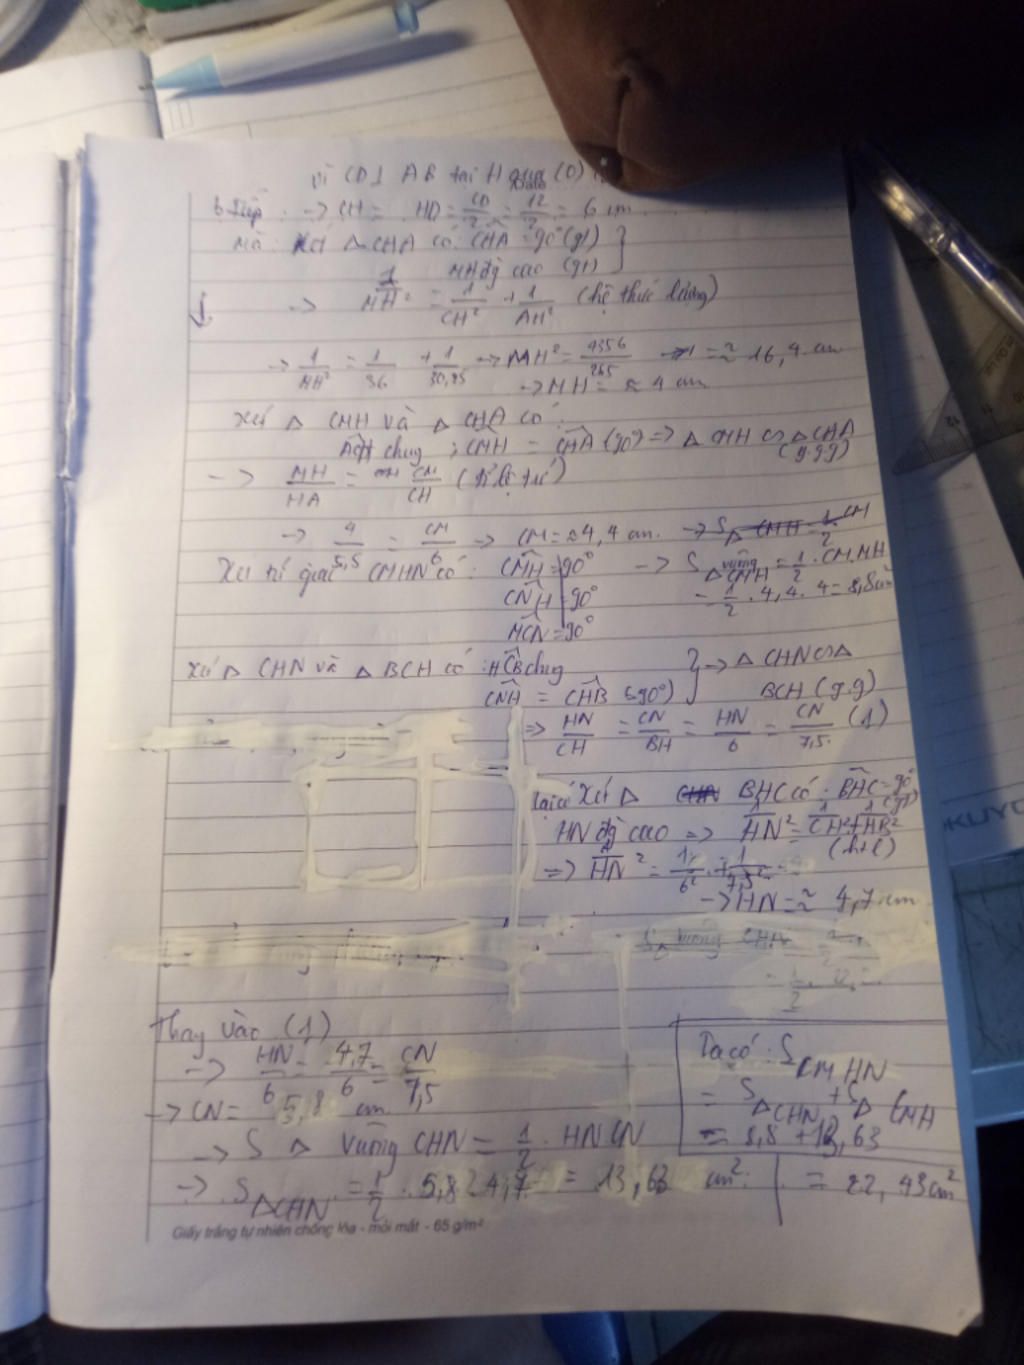 Vì CD⊥ AB tại H qua (O)
b tiếp. → CH = HD = CD/2 = 12/2 = 6 cm
Mà: Xét △ CHA có: CHA = 90° (gt)
MH đg cao (gt)
→ 1/MH² = 1/CH² + 1/AH² (hệ thức lượng)
→ 1/MH² = 1/36 + 1/30,25 → MH² = 4356/265 = ≈ 16,4 cm
→ MH = ≈ 4 cm
Xét △ CMH và △ CHA có:
ACH chung ; CMH = CHA (90°) => △ CMH ∽ △ CHA
(g.g)
→ MH/HA = CM/CH (tỉ lệ t/ư)
→ 4/5,5 = CM/6 → CM = ≈ 4,4 cm. → S△ CMH = 1/2 CM
Xét tứ giác CMHN có: CMH = 90° → S△ vuông CMH = 1/2 . CM.MH
CNH = 90° = 1/2 . 4,4. 4 = 8,8 cm²
MCN = 90°
Xét △ CHN và △ BCH có : HCB chung } → △ CHN ∽ △
CNH = CHB (=90°) BCH (g.g)
=> HN/CH = CN/BH = HN/6 = CN/7,5 (1)
lại có Xét △ CHN BHC có : BHC = 90° (gt)
HN đg cao => 1/HN² = 1/CH² + 1/HB²
(htl)
=> 1/HN² = 1/6² + 1/7,5²
→ HN = ≈ 4,7 cm
S△ vuông CHN
Thay vào (1)
→ HN/6 = 4,7/6 = CN/7,5
→ CN = 5,8 cm
→ S △ vuông CHN = 1/2 . HN CN
→ S△CHN = 1/2 . 5,8 . 4,7 = 13,63 cm²
Ta có : S CMHN
= S△CHN + S△ CMH
= 8,8 + 13,63
= 22,43 cm²
Giấy trắng tự nhiên chống lóa - mỏi mắt - 65 g/m²